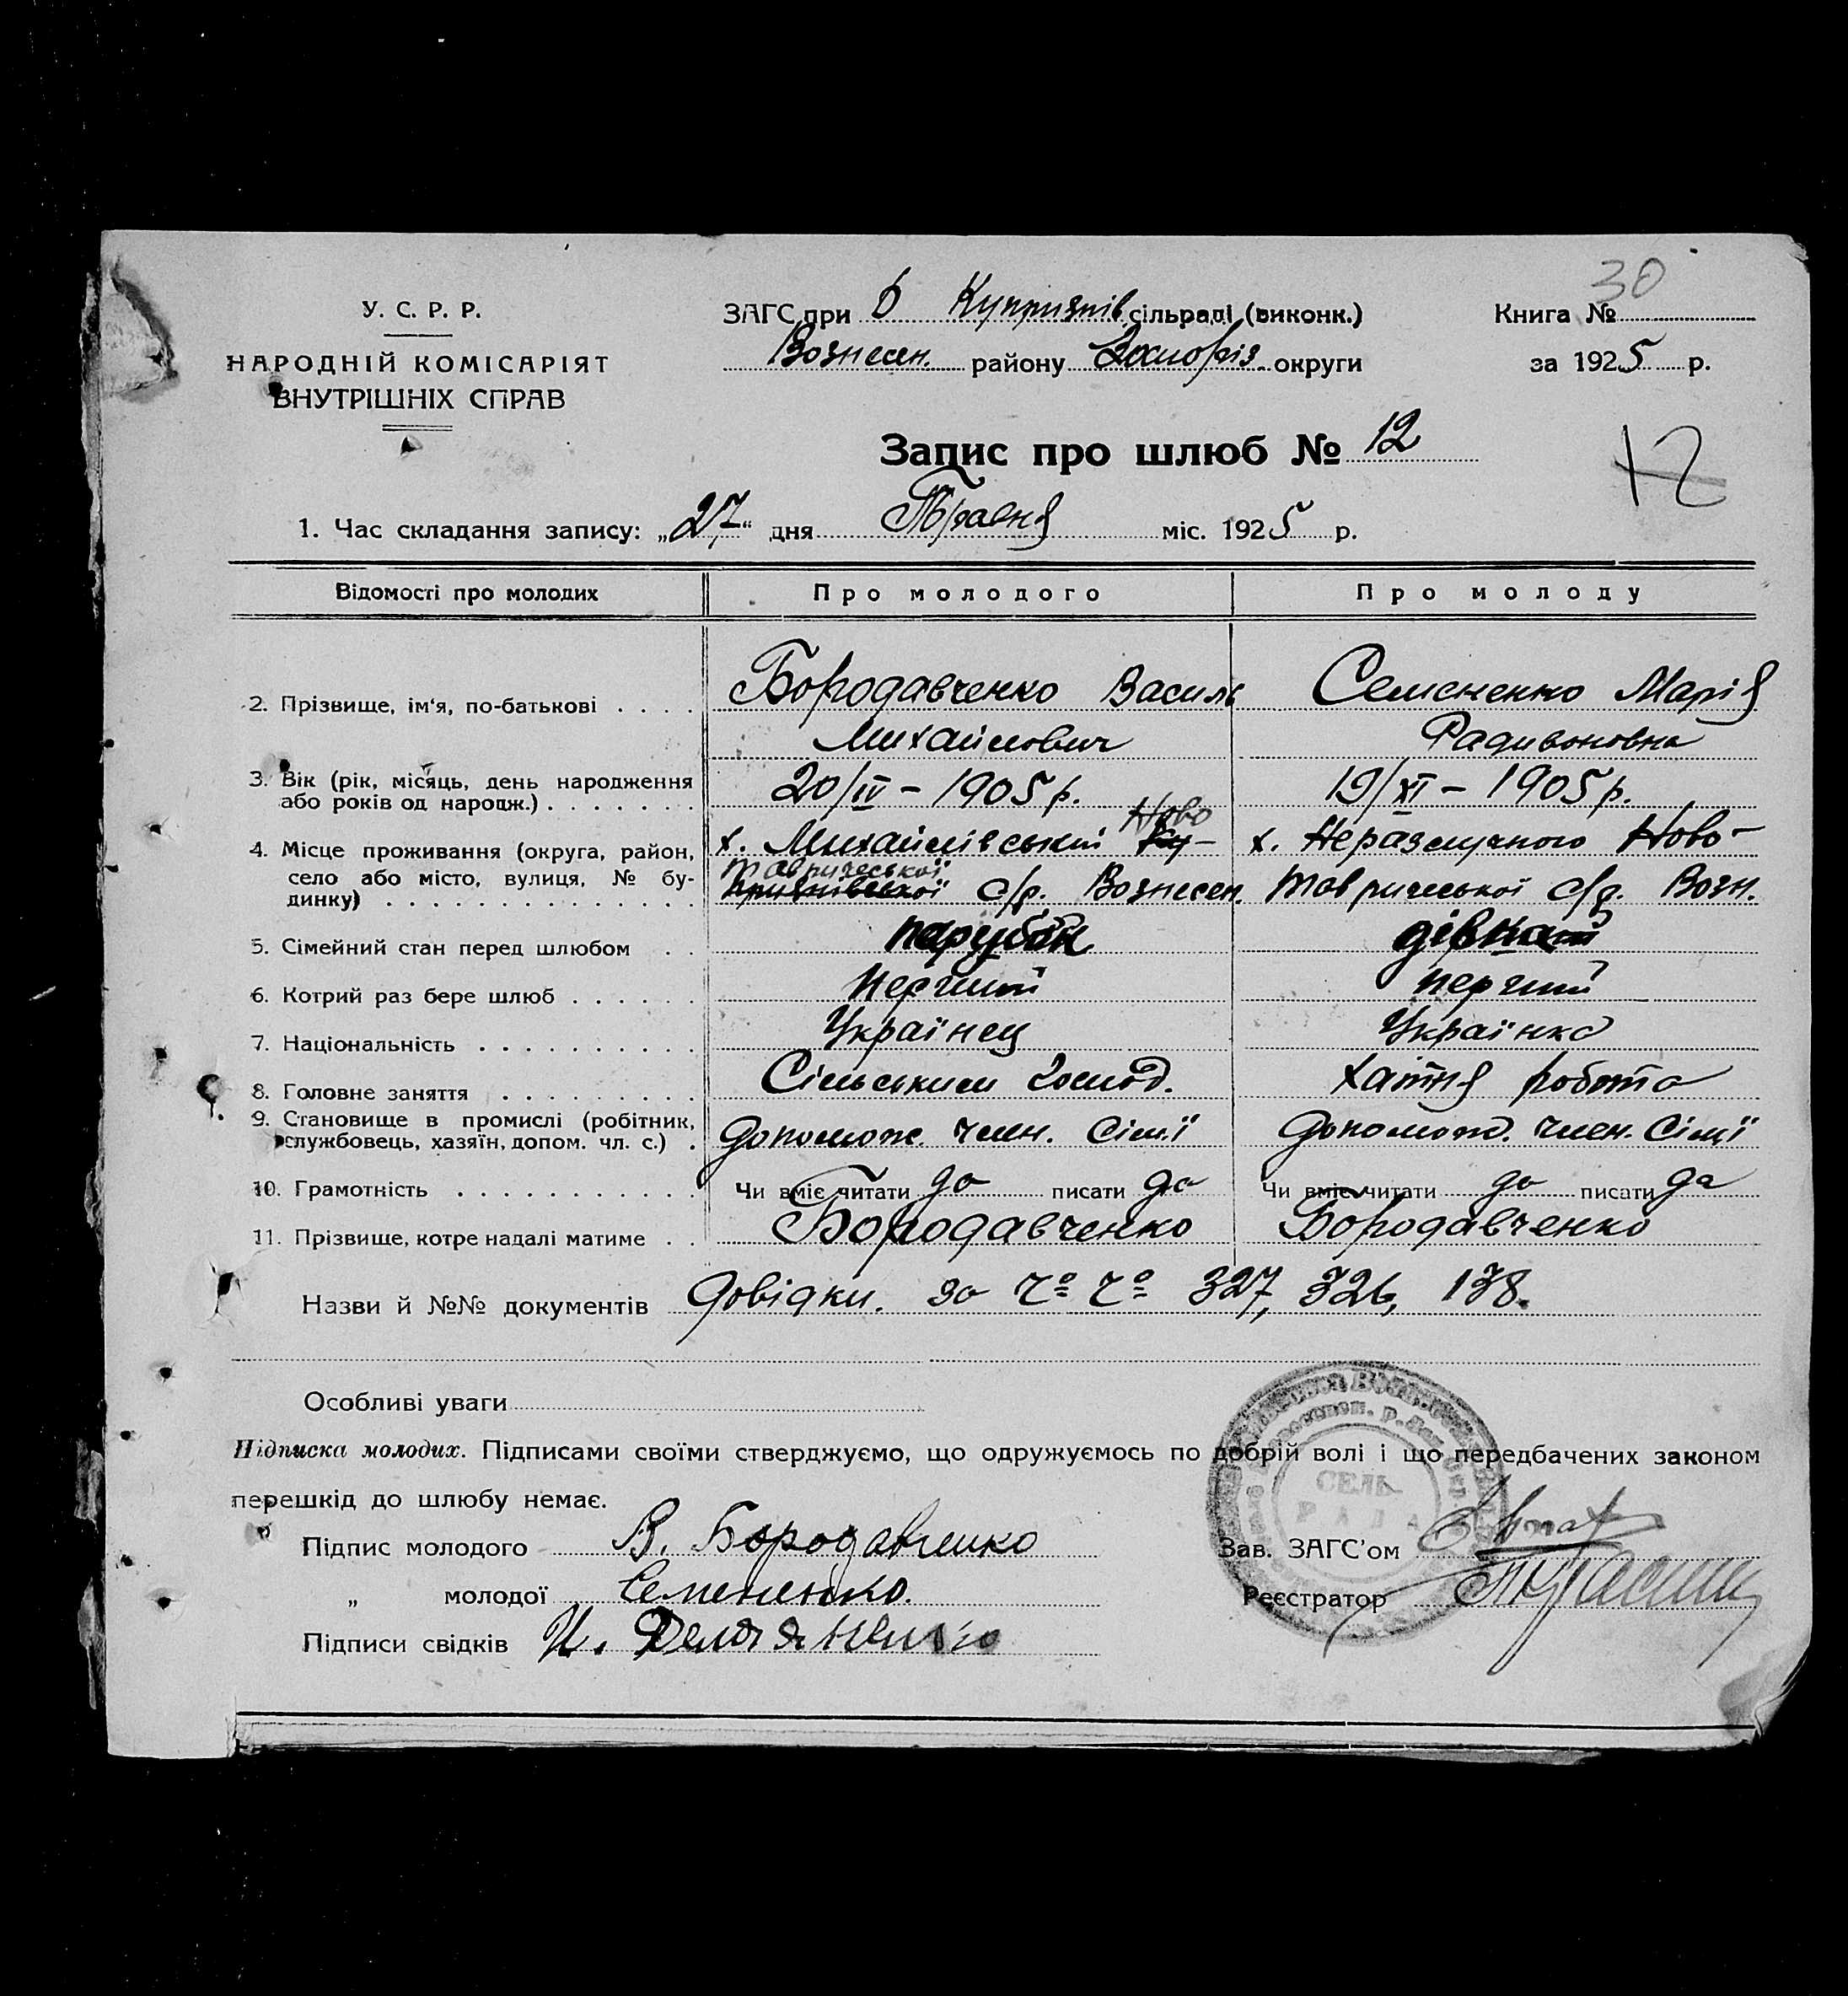 30
У. С. Р. Р.
НАРОДНІЙ КОМІСАРІЯТ
ВНУТРІШНІХ СПРАВ
ЗАГС при Куприянів сільраді (виконк.)
Вознесен. району Запоріз. округи
Книга №
за 1925 р.
Запис про шлюб № 12
12
1. Час складання запису: „27“ дня Травня міс. 1925 р.
Відомості про молодих Про молодого Про молоду
2. Прізвище, ім'я, по-батькові . . . . Бородавченко Василь Семененко Марія
Михайлович Радивоновна
3. Вік (рік, місяць, день народження
або років од народж.) . . . . . . . 20/IV – 1905 р. 19/XI – 1905 р.
Ново
4. Місце проживання (округа, район, х. Михайлівський Ку- х. Неразлучного Ново-
Тавричеської
село або місто, вулиця, № бу-
динку) . . . . . . . . . . . . . . приянівської с/р. Вознесен. Тавричеської с/р. Возн.
5. Сімейний стан перед шлюбом . . парубок дівка
6. Котрий раз бере шлюб . . . . . . перший перший
7. Національність . . . . . . . . . . Українец Українка
8. Головне заняття . . . . . . . . . Сільським господ. хатня робота
9. Становище в промислі (робітник,
службовець, хазяїн, допом. чл. с.) . допомож. член. Сім'ї допомож. член. Сім'ї
10. Грамотність . . . . . . . . . . . Чи вміє читати да писати да Чи вміє читати да писати да
11. Прізвище, котре надалі матиме . . Бородавченко Бородавченко
Назви й №№ документів довідки. за 327, 326, 138.
Особливі уваги
Підписка молодих. Підписами своїми стверджуємо, що одружуємось по добрій волі і що передбачених законом
перешкід до шлюбу немає.
СЕЛЬ-
РАДА
Підпис молодого В. Бородавченко
„ молодої Семененко.
Підписи свідків
Зав. ЗАГС'ом
Реєстратор